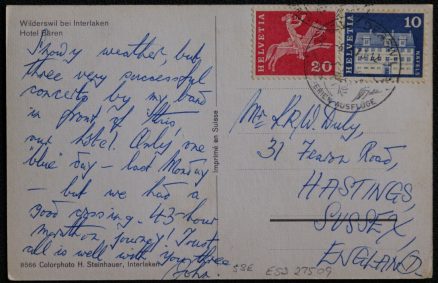 Wilderswil bei Interlaken
Hotel Bären
Showery weather, but
three very successful
concerts by my band
in front of this
our hotel. Only one
"blue" day – last Monday
– but we had a
good crossing. 43-hour
marathon journey! Trust
all is well with you three
John.
8566 Colorphoto H. Steinhauer, Interlaken
Imprimé en Suisse
HELVETIA
20
HELVETIA
10
FERIEN AUSFLÜGE
Mr. L.R.W. Duly,
31 Road,
HASTINGS
SUSSEX
ENGLAND.
S8E ESJ 27509